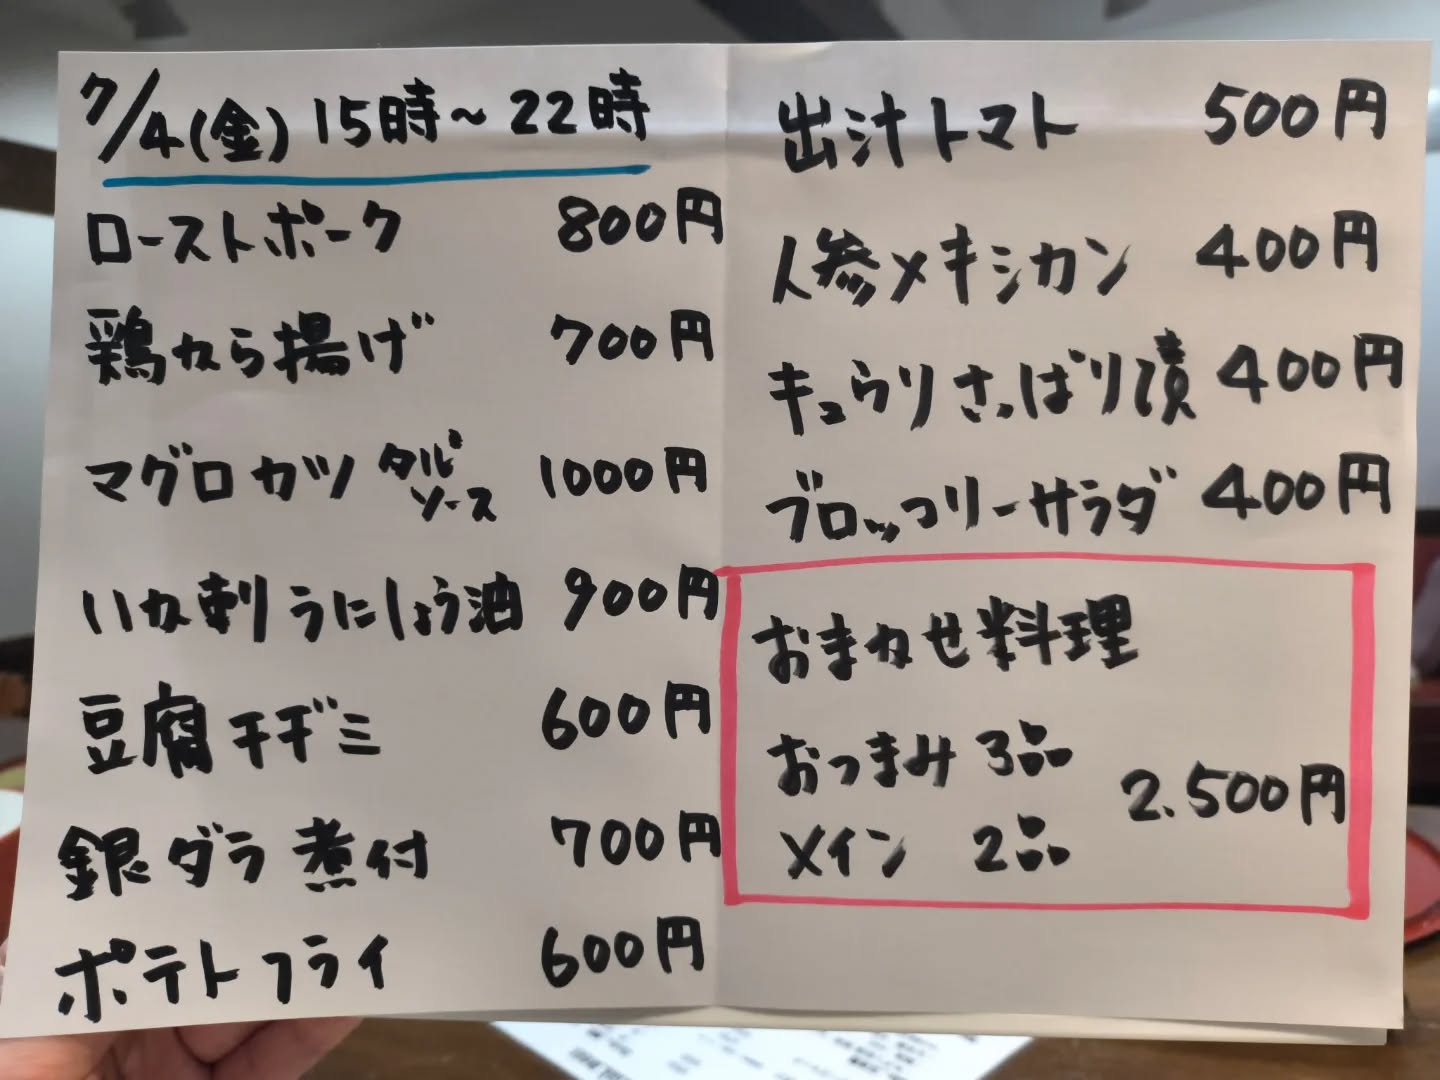 7/4(金) 15時~22時
ローストポーク 800円
鶏から揚げ 700円
マグロカツ タルソース 1000円
いか刺 うにしょう油 900円
豆腐チヂミ 600円
銀ダラ煮付 700円
ポテトフライ 600円
出汁トマト 500円
人参メキシカン 400円
キュウリさっぱり漬 400円
ブロッコリーサラダ 400円
おまかせ料理
おつまみ 3品
メイン 2品
2.500円